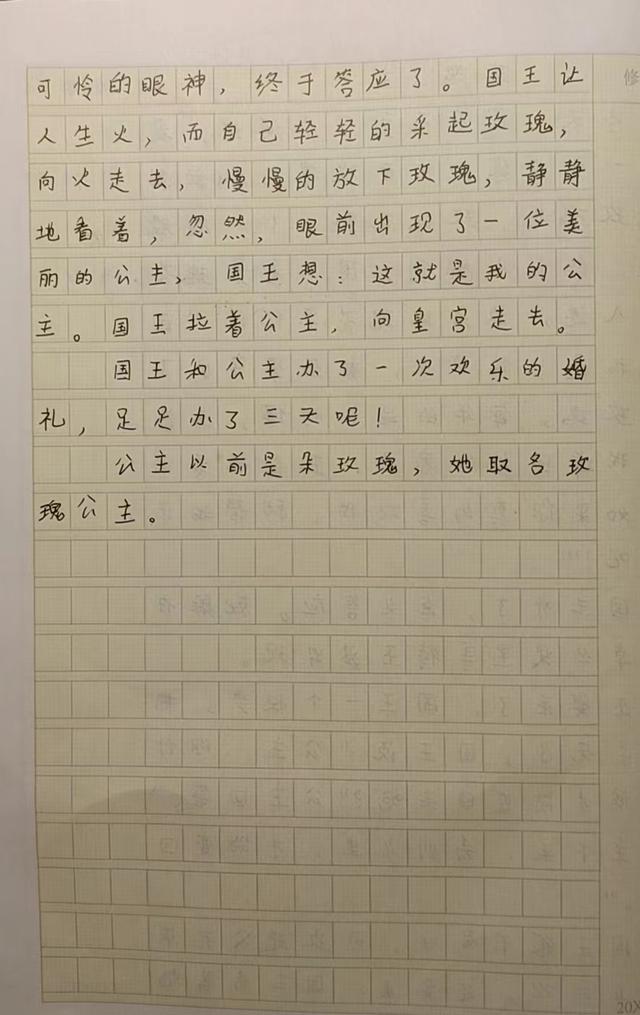 可怜的眼神，终于答应了。国王让
人生火，而自己轻轻的采起玫瑰，
向火走去，慢慢的放下玫瑰，静静
地看着，忽然，眼前出现了一位美
丽的公主，国王想：这就是我的公
主。国王拉着公主，向皇宫走去。
国王和公主办了一次欢乐的婚
礼，足足办了三天呢！
公主以前是朵玫瑰，她取名玫
瑰公主。
20X